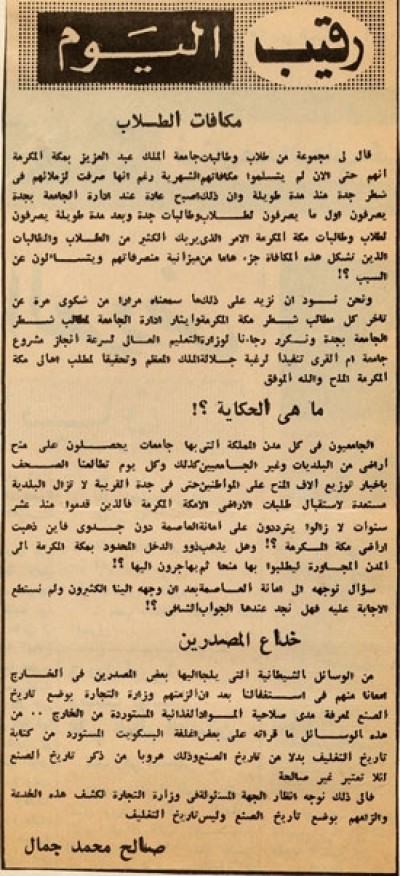 رقيب اليوم
مكافات الطلاب
قال لى مجموعة من طلاب وطالبات جامعة الملك عبد العزيز بمكة المكرمة
أنهم حتى الان لم يتسلموا مكافاتهم الشهرية رغم انها صرفت لزملائهم فى
شطر جدة منذ مدة طويلة وان ذلك اصبح عادة عند ادارة الجامعة بجدة
يصرفون اول ما يصرفون لطلاب وطالبات جدة وبعد مدة طويلة يصرفون
لطلاب وطالبات مكة المكرمة الامر الذى يربك الكثير من الطلاب والطالبات
الذين تشكل هذه المكافاة جزء هاما من ميزانية منصرفاتهم ويتساءلون عن
السبب ؟!
ونحن نود ان نزيد على ذلك ما سمعناه مرارا من شكوى مرة عن
تاخر كل مطالب شطر مكة المكرمة وايثار ادارة الجامعة لمطالب شطر
الجامعة بجدة ونكرر رجاءنا لوزارة التعليم العالى لسرعة انجاز مشروع
جامعة ام القرى تنفيذا لرغبة جلالة الملك المعظم وتحقيقا لمطلب اهالى مكة
المكرمة الملح والله الموفق
ما هى الحكاية ؟!
الجامعيون فى كل مدن المملكة التى بها جامعات يحصلون على منح
أراضى من البلديات وغير الجامعيين كذلك وكل يوم تطالعنا الصحف
باخبار توزيع آلاف المنح على المواطنين حتى فى جدة القريبة لا تزال البلدية
مستعدة لاستقبال طلبات الاراضى الا مكة المكرمة فالذين قدموا منذ عشر
سنوات لا زالوا يترددون على أمانة العاصمة دون جدوى فاين ذهبت
اراضى مكة المكرمة ؟! وهل يذهب ذوو الدخل المحدود بمكة المكرمة الى
المدن المجاورة ليطلبوا بها منحا ثم يهاجرون اليها ؟!
سؤال نوجهه الى امانة العاصمة بعد ان وجهه الينا الكثيرون ولم نستطع
الاجابة عليه فهل نجد عندها الجواب الشافى ؟!
خداع المصدرين
من الوسائل الشيطانية التى يلجا اليها بعض المصدرين فى الخارج
امعانا منهم فى استغفالنا بعد ان الزمتهم وزارة التجارة بوضع تاريخ
الصنع لمعرفة مدى صلاحية المواد الغذائية المستوردة من الخارج ٠٠ من
هذه الوسائل ما قراته على بعض اغلفة البسكويت المستورد من كتابة
تاريخ التغليف بدلا من تاريخ الصنع وذلك هروبا من ذكر تاريخ الصنع
لئلا تعتبر غير صالحة
فالى ذلك نوجه انظار الجهة المسئولة فى وزارة التجارة لكشف هذه الخدعة
والزامهم بوضع تاريخ الصنع وليس تاريخ التغليف
صالح محمد جمال